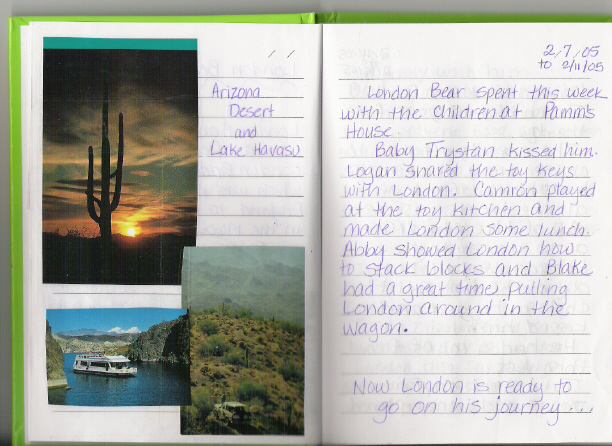 Arizona
Desert
and
Lake Havasu
2/7/05
to 2/11/05
London Bear spent this week
with the children at Pamm's
House.
Baby Trystan kissed him.
Logan shared the toy keys
with London. Camron played
at the toy kitchen and
made London some lunch.
Abby showed London how
to stack blocks and Blake
had a great time pulling
London around in the
wagon.
Now London is ready to
go on his journey...